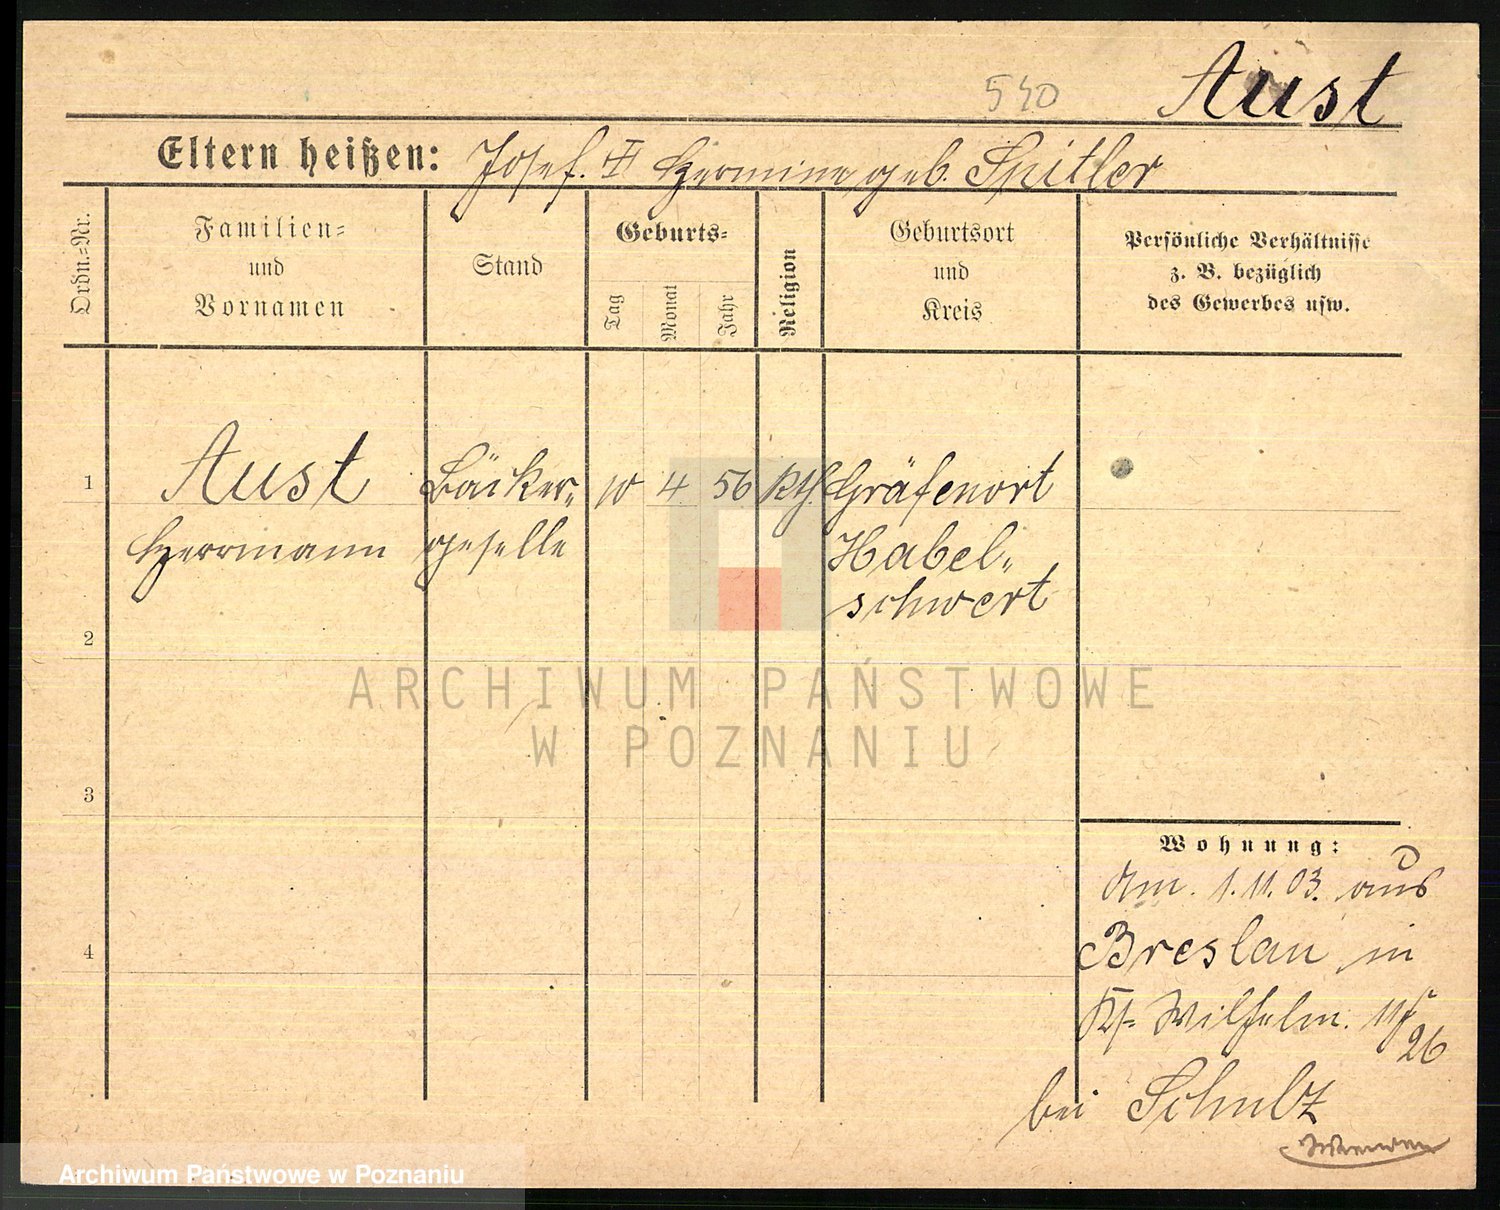 540
Aust
Eltern heißen: Josef. II Hermine geb. Spitler
Ordn.-Nr.
Familien-
und
Vornamen
Stand
Geburts-
Tag
Monat
Jahr
Religion
Geburtsort
und
Kreis
Persönliche Verhältnisse
z. B. bezüglich
des Gewerbes usw.
1
Aust
Herrmann
Bäcker-
geselle
10 4 56 Kth.
Gräfenort
Habel-
schwert
2
ARCHIWUM PAŃSTWOWE
W POZNANIU
3
Wohnung:
Am. 1.11.03. aus
Breslau in
4
Wilhelm.
26
bei Schulz
Archiwum Państwowe w Poznaniu